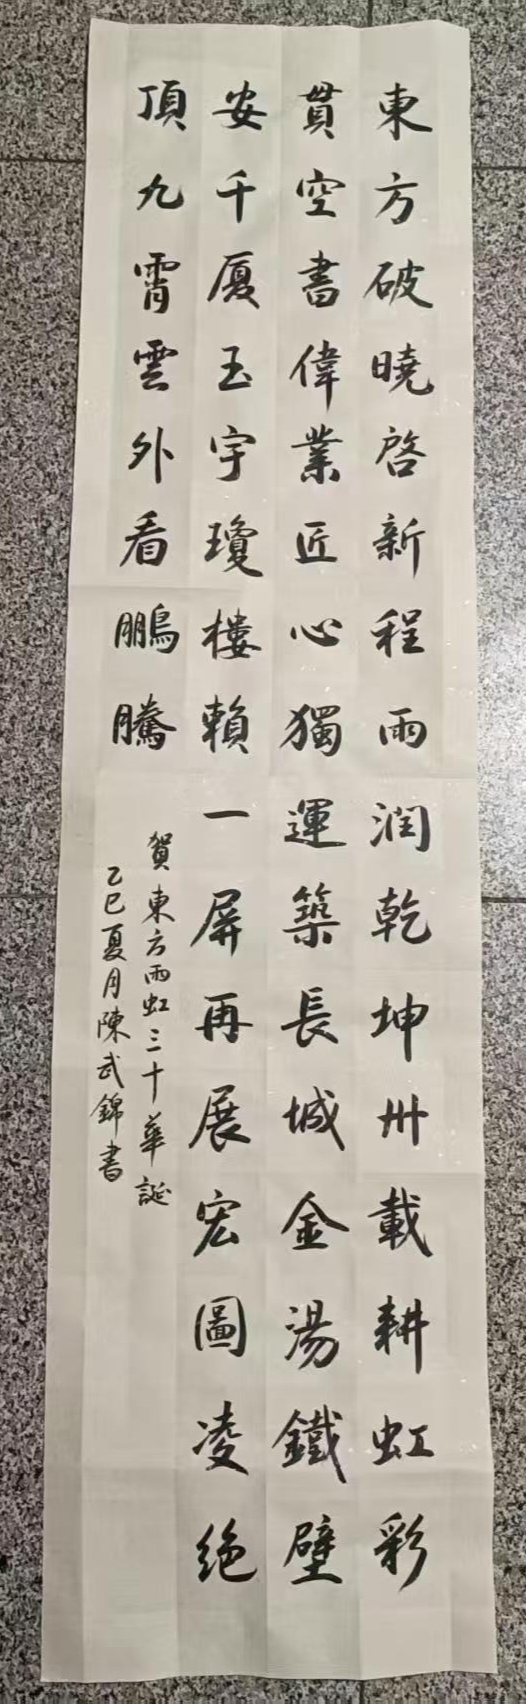 東方破曉啓新程雨潤乾坤卅載耕虹彩
貫空書偉業匠心獨運築長城金湯鐵壁
安千厦玉宇瓊樓賴一屏再展宏圖凌絶
頂九霄雲外看鵬騰
賀東方雨虹三十華誕
乙巳夏月陳武錦書